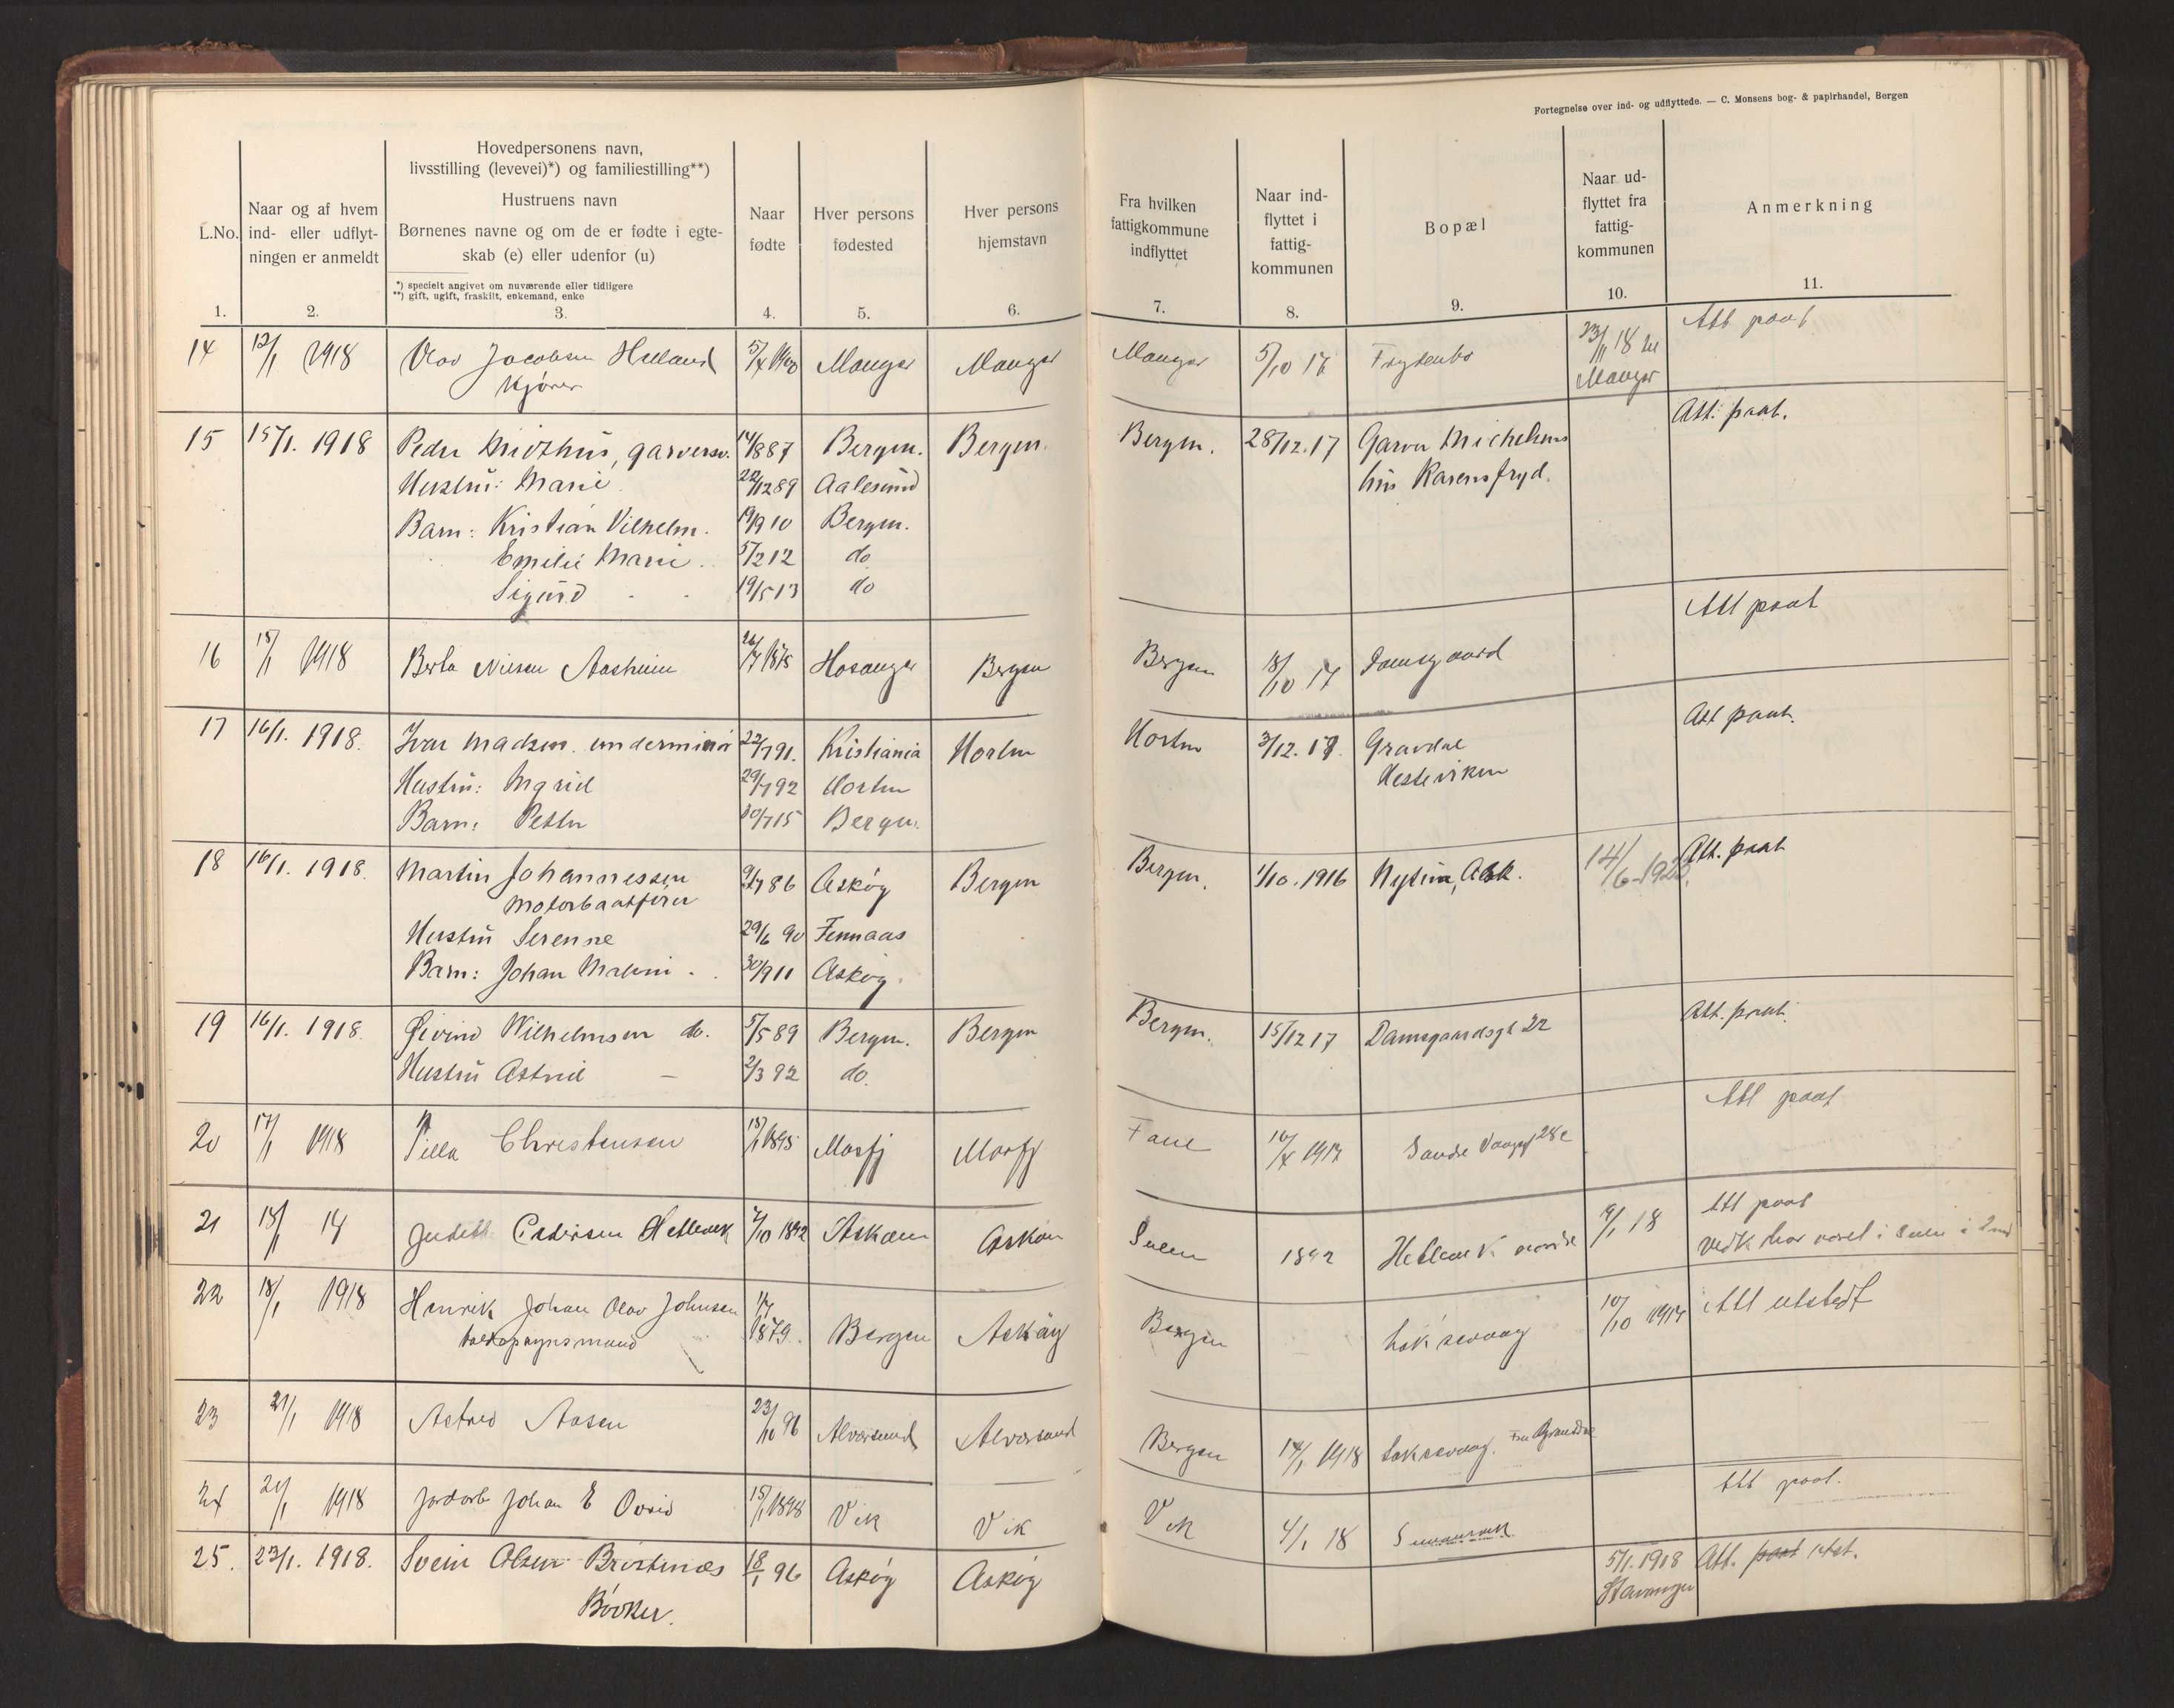 Fortegnelse over ind- og udflyttede. — C. Monsens bog- & papirhandel, Bergen
L.No.
1.
Naar og af hvem
ind- eller udflyt-
ningen er anmeldt
2.
Hovedpersonens navn,
livsstilling (levevei)*) og familiestilling**)
Hustruens navn
Børnenes navne og om de er fødte i egte-
skab (e) eller udenfor (u)
*) specielt angivet om nuværende eller tidligere
**) gift, ugift, fraskilt, enkemand, enke
3.
Naar
fødte
4.
Hver persons
fødested
5.
Hver persons
hjemstavn
6.
Fra hvilken
fattigkommune
indflyttet
7.
Naar ind-
flyttet i
fattig-
kommunen
8.
Bopæl
9.
Naar ud-
flyttet fra
fattig-
kommunen
10.
Anmerkning
11.
14 12/1 1918 Olav Jacobsen Helland Manger Manger Manger 5/10 17 Frydenbø 23/11 18 til Att paat
Kjører Manger
15 15/1. 1918 Peder garversv. 14/8 87 Bergen. Bergen. Bergen. 28/12.17 Garver Michelsens Att. paat.
Hustru: Marie 22/12 89 Aalesund hus Karensfryd.
Barn: Kristian Vilhelm. 19/9 10 Bergen.
Emilie Marie 5/2 12 do
Sigurd 19/5 13 do
16 15/1 1918 Berta Nilsen Aasheim 26/7 1875 Hosanger Bergen Bergen 18/10 17 Damsgaard Att paat
17 16/1. 1918. Ivar Madsen underminør 22/7 91. Kristiania Horten Horten 3/12. 17. Gravdal Att paat.
Hustru: Ingrid 29/7 92 Horten Hesteviken
Barn: Petter 30/7 15 Bergen.
18 16/1. 1918. Martin Johannessen 9/7 86 Askøy Bergen Bergen. 1/10. 1916 Att. paat
motorbaatfører
Hustru Serenne 29/6 90 Fennaas
Barn: Johan Malvin 30/9 11 Askøy.
19 16/1. 1918. Øivind Wilhelmsen do. 5/5 89 Bergen. Bergen Bergen. 15/12 17 Damsgaardsgt 22 Att. paat.
Hustru Astrid 2/3 92 do.
20 17/1 1918 Christensen 15/1 1895 Masfj Masfj Fane 1917 28c Att paat
21 18/1 Judith Pedersen Hetlevik 7/10 1892 Askøen Askøen 1892 Hetlevik nordre 9/1 18 Att paat
22 18/1 1918 Henrik Johan Olav Johnsen 1879. Bergen Askøy Bergen Laksevaag 10/10 1917 Att utstedt
toldopsynsmand
23 21/1 1918 Astrid Aasen 23/10 96 Alversund Alversund Bergen 14/1 1918 Laksevaag.
24 21/1 1918 Jordarb Johan E 15/1 1898 Vik Vik Vik 4/1 18 Att paat.
25. 23/1. 1918. Svein Olsen 18/1 96 Askøy Askøy 5/1. 1918 Att. paat utst.
Bødker. Stavanger